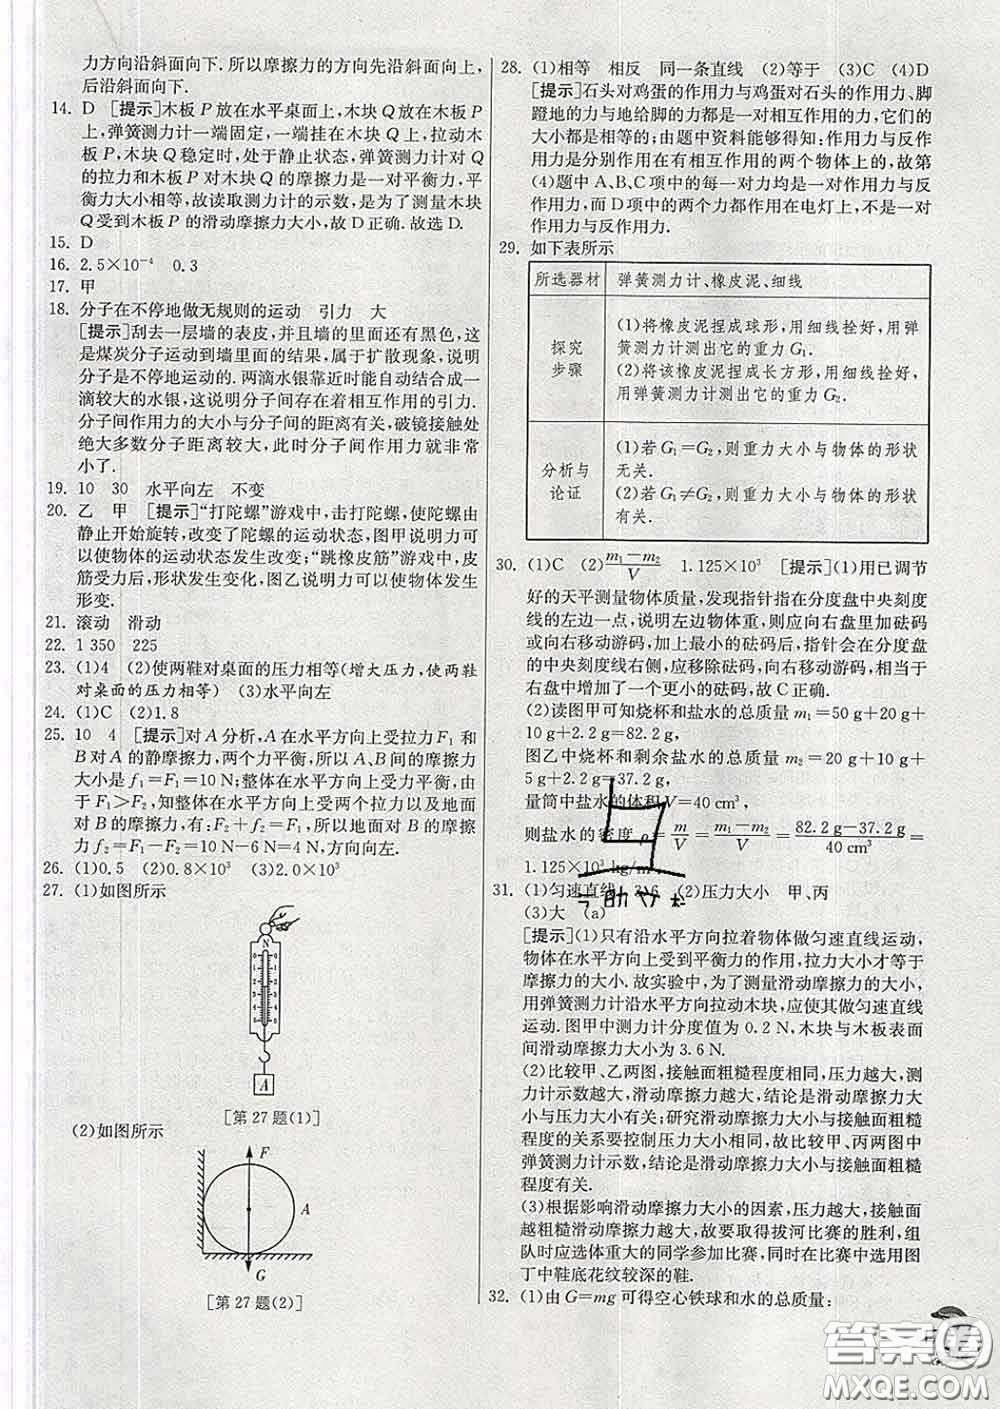 力方向沿斜面向下. 所以摩擦力的方向先沿斜面向上,
后沿斜面向下.
14. D [提示]木板 P 放在水平桌面上,木块 Q 放在木板 P
上,弹簧测力计一端固定,一端挂在木块 Q 上,拉动木
板 P,木块 Q 稳定时,处于静止状态,弹簧测力计对 Q
的拉力和木板 P 对木块 Q 的摩擦力是一对平衡力,平
衡力大小相等,故读取测力计的示数,是为了测量木块
Q 受到木板 P 的滑动摩擦力大小,故 D 正确. 故选 D.
15. D
16. 2.5×10⁻⁴ 0.3
17. 甲
18. 分子在不停地做无规则的运动 引力 大
[提示]刮去一层墙的表皮,并且墙的里面还有黑色,这
是煤炭分子运动到墙里面的结果,属于扩散现象,说明
分子是不停地运动的. 两滴水银靠近时能自动结合成一
滴较大的水银,这说明分子间存在着相互作用的引力.
分子间作用力的大小与分子间的距离有关,破镜接触处
绝大多数分子距离较大,此时分子间作用力就非常
小了.
19. 10 30 水平向左 不变
20. 乙 甲 [提示]“打陀螺”游戏中,击打陀螺,使陀螺由
静止开始旋转,改变了陀螺的运动状态,图甲说明力可
以使物体的运动状态发生改变;“跳橡皮筋”游戏中,皮
筋受力后,形状发生变化,图乙说明力可以使物体发生
形变.
21. 滚动 滑动
22. 1 350 225
23. (1)4 (2)使两鞋对桌面的压力相等(增大压力,使两鞋
对桌面的压力相等) (3)水平向左
24. (1)C (2)1.8
25. 10 4 [提示]对 A 分析,A 在水平方向上受拉力 F₁ 和
B 对 A 的静摩擦力,两个力平衡,所以 A、B 间的摩擦力
大小是 f₁=F₁=10 N;整体在水平方向上受力平衡,由
于 F₁>F₂,知整体在水平方向上受两个拉力以及地面
对 B 的摩擦力,有:F₂+f₂=F₁,所以地面对 B 的摩擦
力 f₂=F₁−F₂=10 N−6 N=4 N,方向向左.
26. (1)0.5 (2)0.8×10³ (3)2.0×10³
27. (1)如图所示
N
0 0
1 1
2 2
3 3
4 4
5 5
A
[第 27 题(1)]
(2)如图所示
F
A
G
[第 27 题(2)]
28. (1)相等 相反 同一条直线 (2)等于 (3)C (4)D
[提示]石头对鸡蛋的作用力与鸡蛋对石头的作用力、脚
蹬地的力与地给脚的力都是一对相互作用的力,它们的
大小都是相等的;由题中资料能够得知:作用力与反作
用力是分别作用在有相互作用的两个物体上的,故第
(4)题中 A、B、C 项中的每一对力均是作用力与反作
用力,而 D 项中的两个力都作用在电灯上,不是一对
作用力与反作用力.
29. 如下表所示
所选器材 弹簧测力计、橡皮泥、细线
探究
步骤
(1)将橡皮泥捏成球形,用细线拴好,用弹
簧测力计测出它的重力 G₁.
(2)将该橡皮泥捏成长方形,用细线拴好,
用弹簧测力计测出它的重力 G₂.
分析与
论证
(1)若 G₁=G₂,则重力大小与物体的形状
无关.
(2)若 G₁≠G₂,则重力大小与物体的形状
有关.
30. (1)C (2)(m₁−m₂)/V 1.125×10³ [提示](1)用已调节
好的天平测量物体质量,发现指针指在分度盘中央刻度
线的左边一点,说明左边物体重,则应向右盘里加砝码
或向右移动游码,加上最小的砝码后,指针会在分度盘
的中央刻度线右侧,应移除砝码,向右移动游码,相当于
右盘中增加了一个更小的砝码,故 C 正确.
(2)读图甲可知烧杯和盐水的总质量 m₁=50 g+20 g+
10 g+2.2 g=82.2 g,
图乙中烧杯和剩余盐水的总质量 m₂=20 g+10 g+
5 g+2.2 g=37.2 g,
量筒中盐水的体积 V=40 cm³,
则盐水的密度 ρ=m/V=(m₁−m₂)/V=(82.2 g−37.2 g)/40 cm³=
1.125×10³ kg/m³.
31. (1)匀速直线 3.6 (2)压力大小 甲、丙
(3)大 (a)
[提示](1)只有沿水平方向拉着物体做匀速直线运动,
物体在水平方向上受到平衡力的作用,拉力大小才等于
摩擦力的大小. 故实验中,为了测量滑动摩擦力的大小,
用弹簧测力计沿水平方向拉动木块,应使其做匀速直线
运动. 图甲中测力计分度值为 0.2 N,木块与木板表面
间滑动摩擦力大小为 3.6 N.
(2)比较甲、乙两图,接触面粗糙程度相同,压力越大,测
力计示数越大,滑动摩擦力越大,结论是滑动摩擦力大
小与压力大小有关;研究滑动摩擦力大小与接触面粗糙
程度的关系要控制压力大小相同,故比较甲、丙两图中
弹簧测力计示数,结论是滑动摩擦力大小与接触面粗糙
程度有关.
(3)根据影响滑动摩擦力大小的因素,压力越大,接触面
越粗糙滑动摩擦力越大,故要取得拔河比赛的胜利,组
队时应选体重大的同学参加比赛,同时在比赛中选用图
丁中鞋底花纹较深的鞋.
32. (1)由 G=mg 可得空心铁球和水的总质量:
答案圈
MXQE.COM